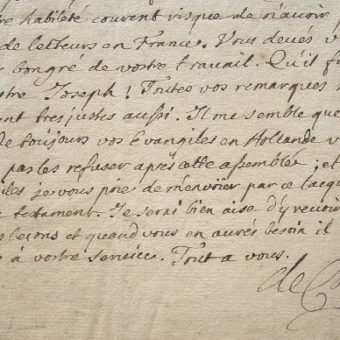 habileté courent risque de n'avoir
de lecteurs en France. Vous devés
congré de vostre travail. Qu'il
Joseph! Toutes vos remarques
tres justes aussi. Il me semble que
toujours vos Evangiles en Hollande
pas les refuser apres cette assemblée; et
je vous prie de m'envoier par ce
testament. Je serai bien aise d'y revoir
leçons et quand vous en aurés besoin il
a vostre service. Tout a vous.
de